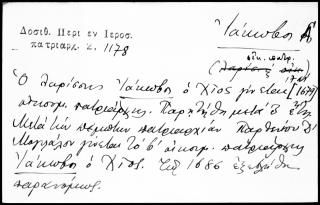 Δοσιθ. Περι εν Ιεροσ.
πατριαρχ. Σ. 1178
Ἰάκωβος Α´
οἰκ. πατρ.
(Λαρίσης
Ὁ Λαρίσσης Ἰάκωβος ὁ Χῖος γίνεται [1679]
οἰκουμ. πατριάρχης. Παρῃτήθη μετὰ 3 ἔτη
Μετὰ τὴν πέμπτην πατριαρχίαν Παρθενίου
Μογγιλάλου γίνεται τὸ β´ οἰκουμ. πατριάρχης
Ἰάκωβος ὁ Χῖος. Τῷ 1686 ἐξεβλήθη
παρανόμως.